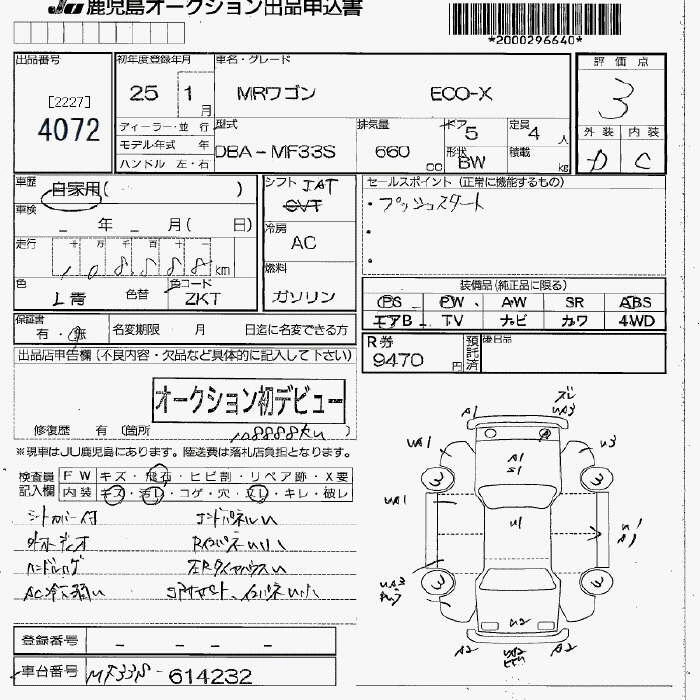 JU 鹿児島オークション出品申込書
*2000296640*
出品番号
[2227]
4072
初年度登録年月
25 1月
車名・グレード
MRワゴン ECO-X
評価点
3
外装 内装
D C
ディーラー・並行
モデル年式 年
ハンドル 左・右
型式
DBA-MF33S
排気量
660 cc
ドア
5
形状
BW
定員
4人
積載
kg
車歴
自家用( )
車検
- 年 - 月( 日)
走行
十 万 千 百 十 一
1 0 8 8 8 8 km
色
L青
色替
色コード
ZKT
シフト JAT
CVT
冷房
AC
燃料
ガソリン
セールスポイント (正常に機能するもの)
・プッシュスタート
・
・
装備品(純正品に限る)
PS PW AW SR ABS
エアB TV ナビ カワ 4WD
保証書
有・無
名変期限 月 日迄に名変できる方
R券
9470円
預託済
後日品
出品店申告欄(不良内容・欠品など具体的に記入して下さい)
オークション初デビュー
修復歴 有(箇所 )
108888km
※現車はJU鹿児島にあります。陸送費は落札店負担となります。
検査員記入欄
FW キズ・飛石・ヒビ割・リペア跡・X要
内装 キズ・汚レ・コゲ・穴・スレ・キレ・破レ
シートカバー付
ハンドルハゲ
AC冷え弱い
登録番号 - - -
車台番号 MF33S-614232
A1
ズレ
UA3
UA1
U3
A1
S1
3
3
UA1
U1
U1
A1
UA3
3
3
U2
A2
UA2
A2